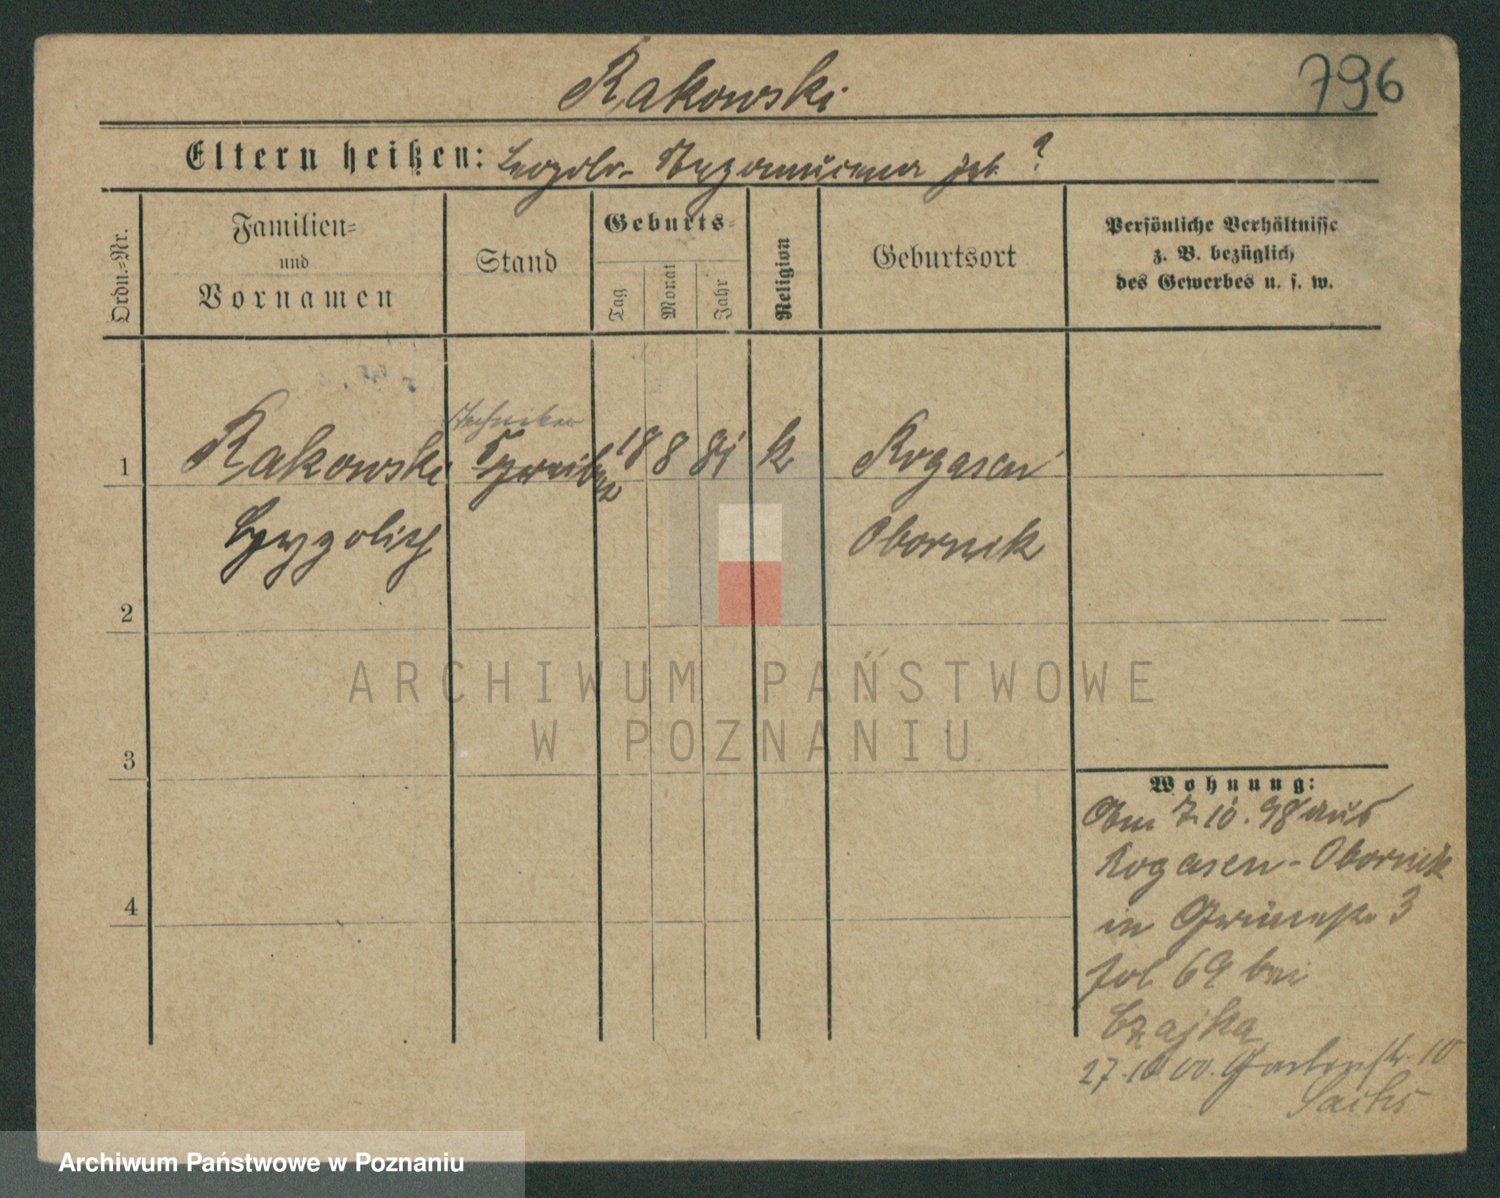 Rakowski
796
Eltern heißen: Leopold - Nepomucena geb. ?
Ordn.=Nr.
Familien=
und
Vornamen
Stand
Geburts=
Tag
Monat
Jahr
Religion
Geburtsort
Persönliche Verhältnisse
z. B. bezüglich
des Gewerbes u. s. w.
Techniker
1 Rakowski Schreiber 18 8 81 k Rogasen
Obornik
2
3
4
Wohnung:
Am 7.10.98 aus
Rogasen - Obornik
in Grünestr. 3
fol 69 bei
Czajka
27.10 00. Gartenstr. 10
Sachs
ARCHIWUM PAŃSTWOWE
W POZNANIU
Archiwum Państwowe w Poznaniu